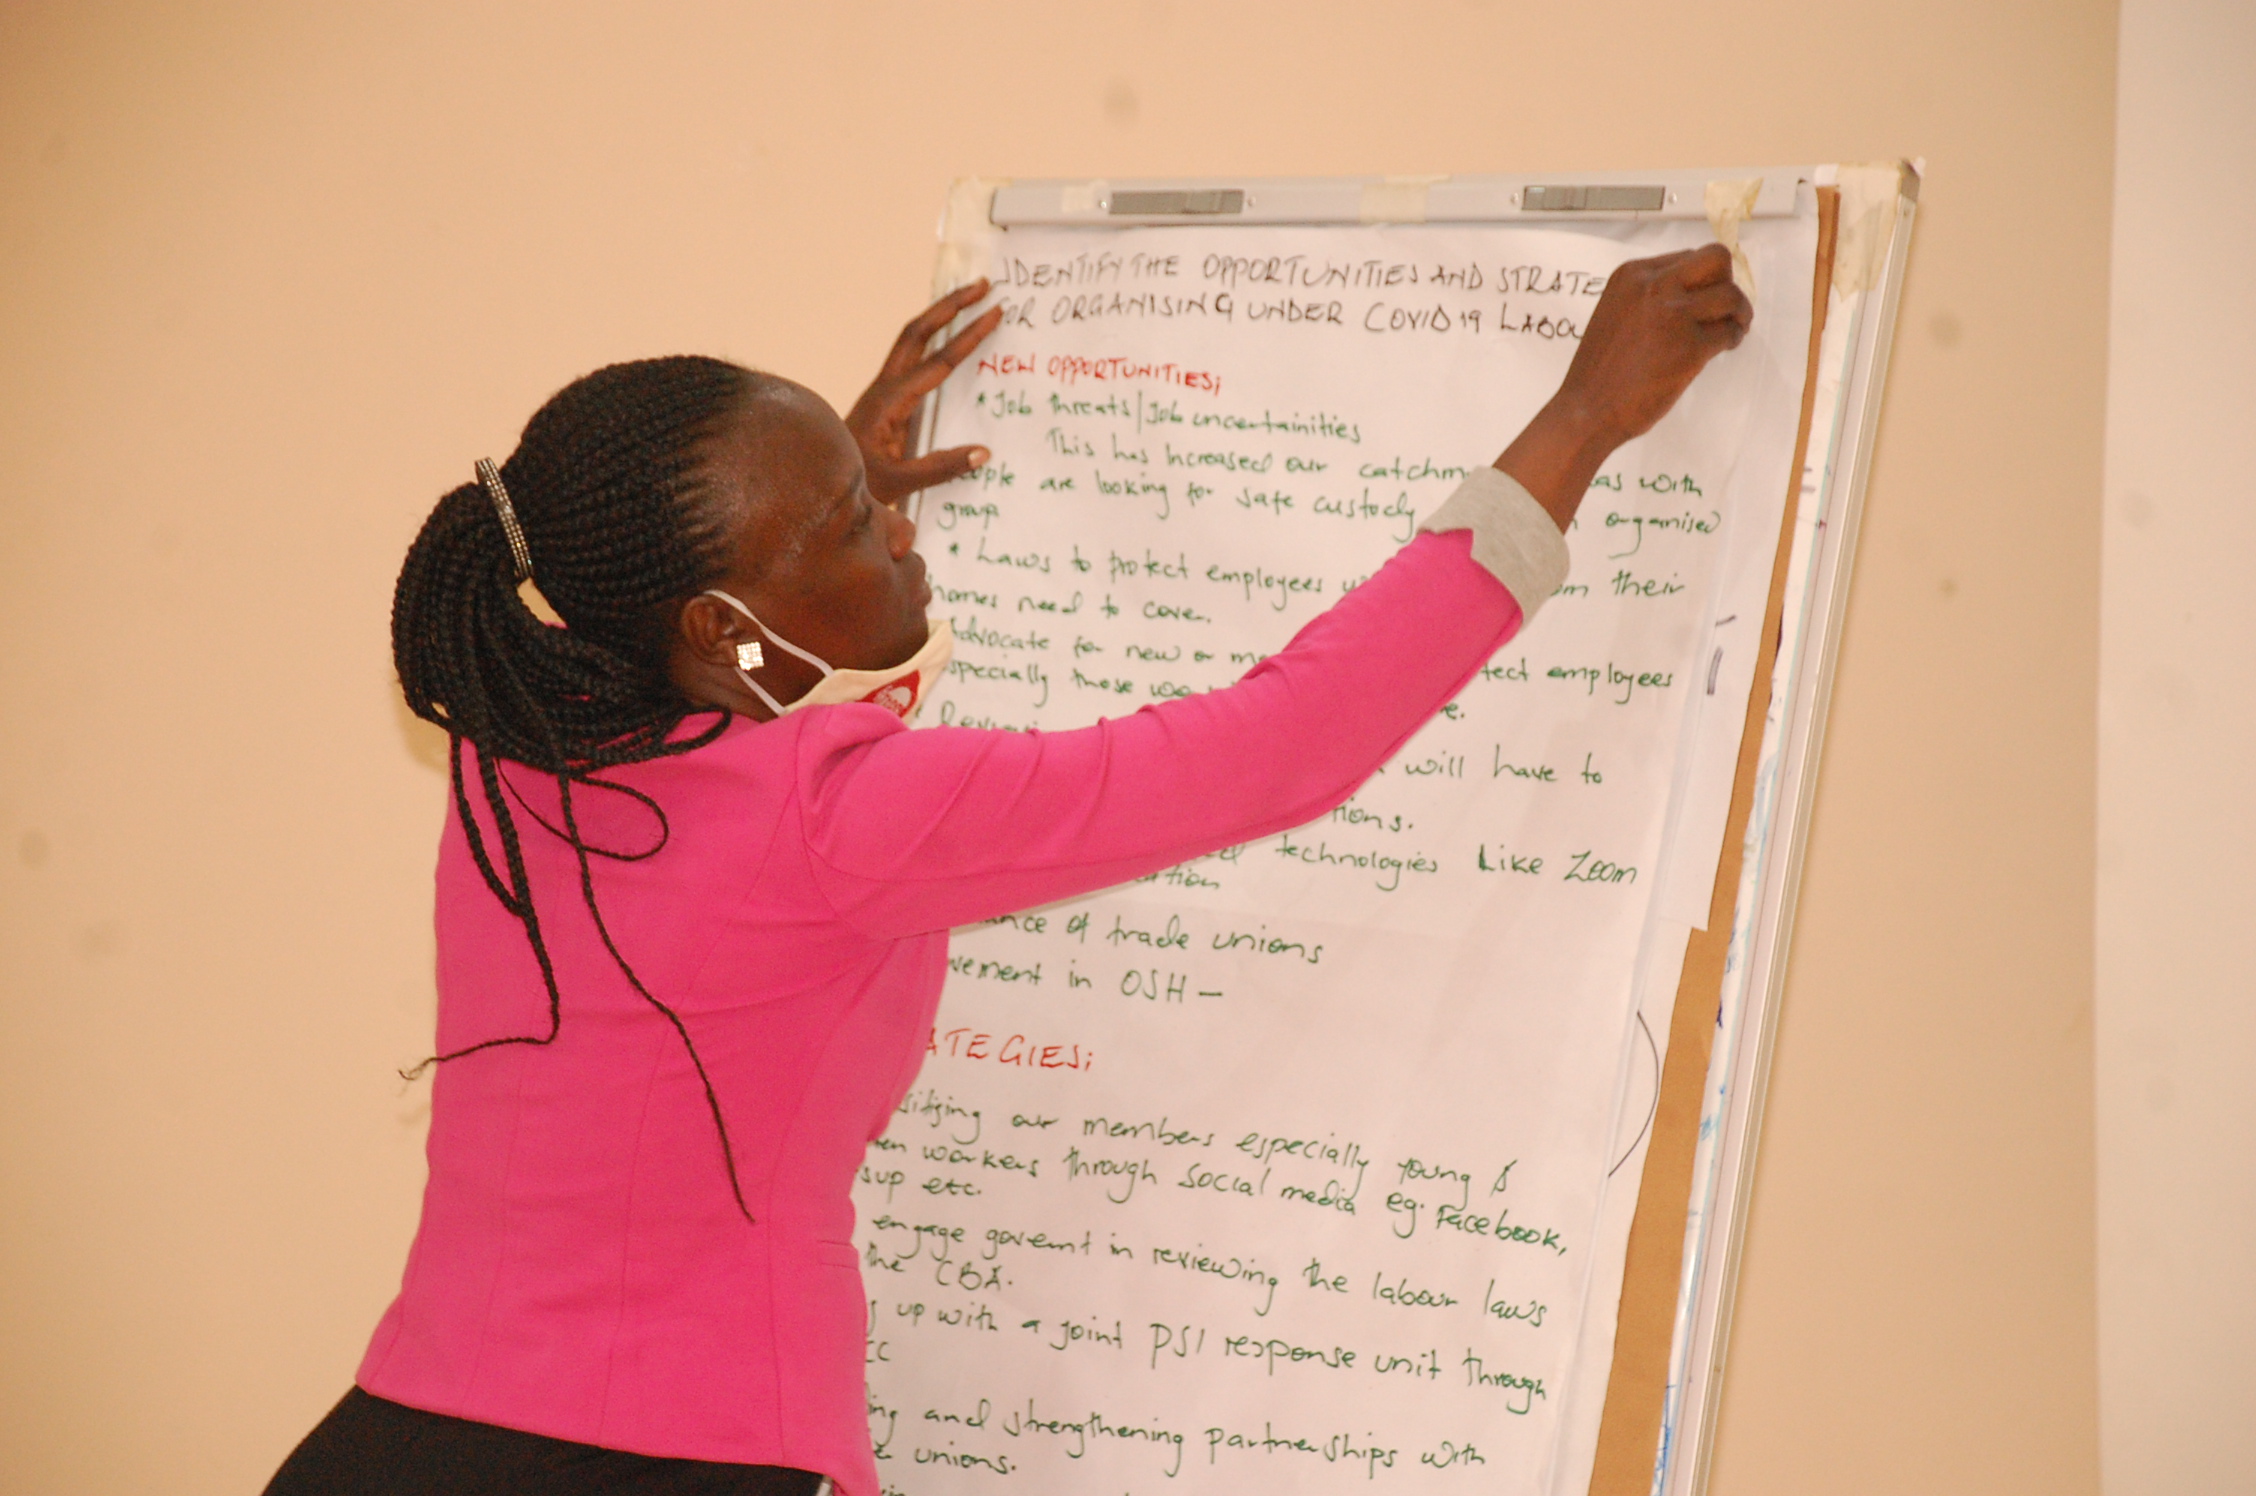 IDENTIFY THE OPPORTUNITIES AND STRATE
FOR ORGANISING UNDER COVID 19 LABOU
NEW OPPORTUNITIES;
* Job threats/Job uncertainities
This has increased our catchm as with
people are looking for safe custody organised
group
* Laws to protect employees from their
homes need to cover.
Advocate for new or tect employees
especially those
will have to
tions.
technologies Like Zoom
ation
ance of trade unions
vement in OSH -
ATEGIES;
sitizing our members especially young &
men workers through social media eg. Facebook,
sup etc.
engage goverment in reviewing the labour laws
the CBA.
up with a joint PSI response unit through
CC
ing and strengthening partnerships with
unions.